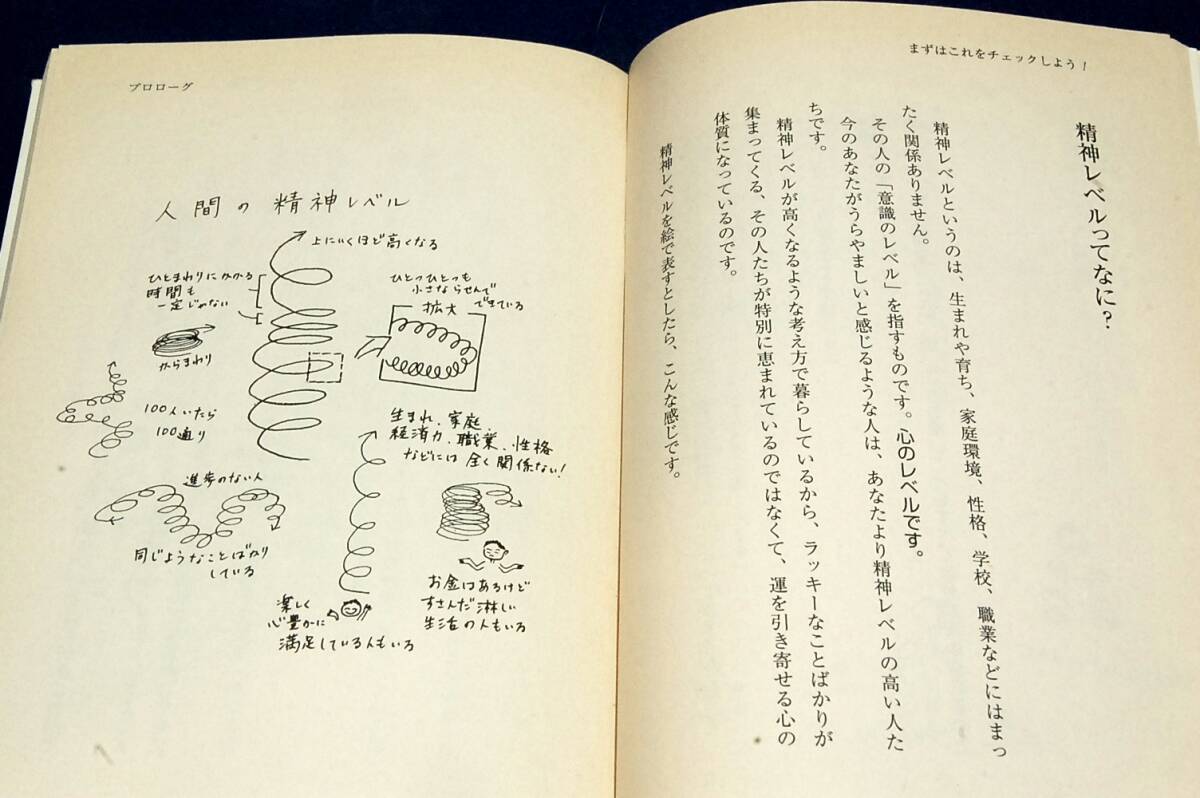 まずはこれをチェックしよう！
精神レベルってなに？
精神レベルというのは、生まれや育ち、家庭環境、性格、学校、職業などにはまっ
たく関係ありません。
その人の「意識のレベル」を指すものです。心のレベルです。
今のあなたがうらやましいと感じるような人は、あなたより精神レベルの高い人た
ちです。
精神レベルが高くなるような考え方で暮らしているから、ラッキーなことばかりが
集まってくる、その人たちが特別に恵まれているのではなくて、運を引き寄せる心の
体質になっているのです。
精神レベルを絵で表すとしたら、こんな感じです。
プロローグ
人間の精神レベル
上にいくほど高くなる
ひとまわりにかかる
時間も
一定じゃない
ひとつひとつも
小さならせんで
できている
拡大
からまわり
100人いたら
100通り
生まれ、家庭、
経済力、職業、性格
などには全く関係ない！
進歩のない人
同じようなことばかり
している
楽しく
心豊かに
満足している人もいる
お金はあるけど
すさんだ淋しい
生活の人もいる